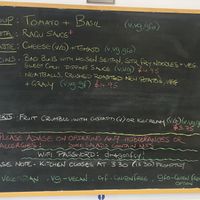 UP: TOMATO + BASIL (v.vg.gfo)
TA: RAGU SAUCE
ASTIE: CHEESE (vo) + TOMATO (v.vg.gfo)
BAO BUNS WITH HOISEN SEITAN, STIR FRY NOODLES + VEG
SWEET CHILLI DIPPING SAUCE (v.vg) £4.95
MEATBALLS, CRUSHED ROASTED NEW POTATOES, VEG
+ GRAVY (v.vg.gf) £4.95
FRUIT CRUMBLE WITH CUSTARD (v) OR ICE CREAM (v.vg)
£3.75
PLEASE ADVISE ON ORDERING ANY INTOLERANCES OR
ALLERGIES! SOME SALADS CONTAIN NUTS
WIFI PASSWORD:
SE NOTE: KITCHEN CLOSES AT 3:30 PROMPTLY
VEGETARIAN, VG - VEGAN, GF - GLUTENFREE, GFO - GLUTENFREE
OPTION